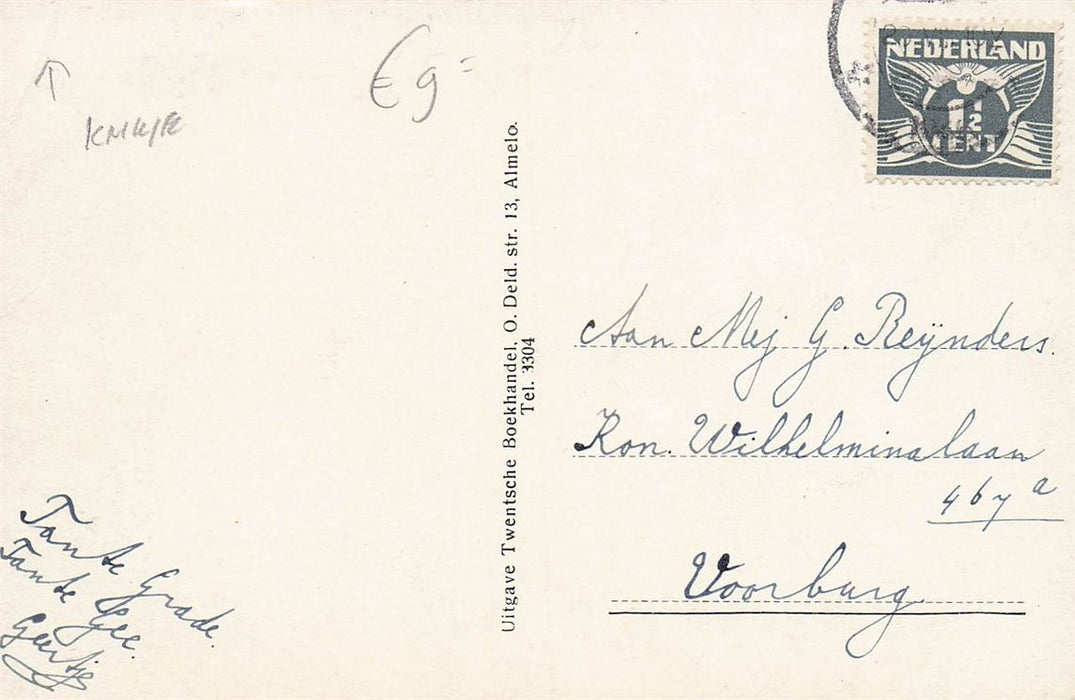 € 9=
NEDERLAND
1½
CENT
Uitgave Twentsche Boekhandel, O. Deld. str. 13, Almelo.
Tel. 3304
Aan Mej G. Reÿnders.
Kon. Wilhelminalaan
467 a
Voorburg
Tante Grade.
Tante Gee.
Geertje